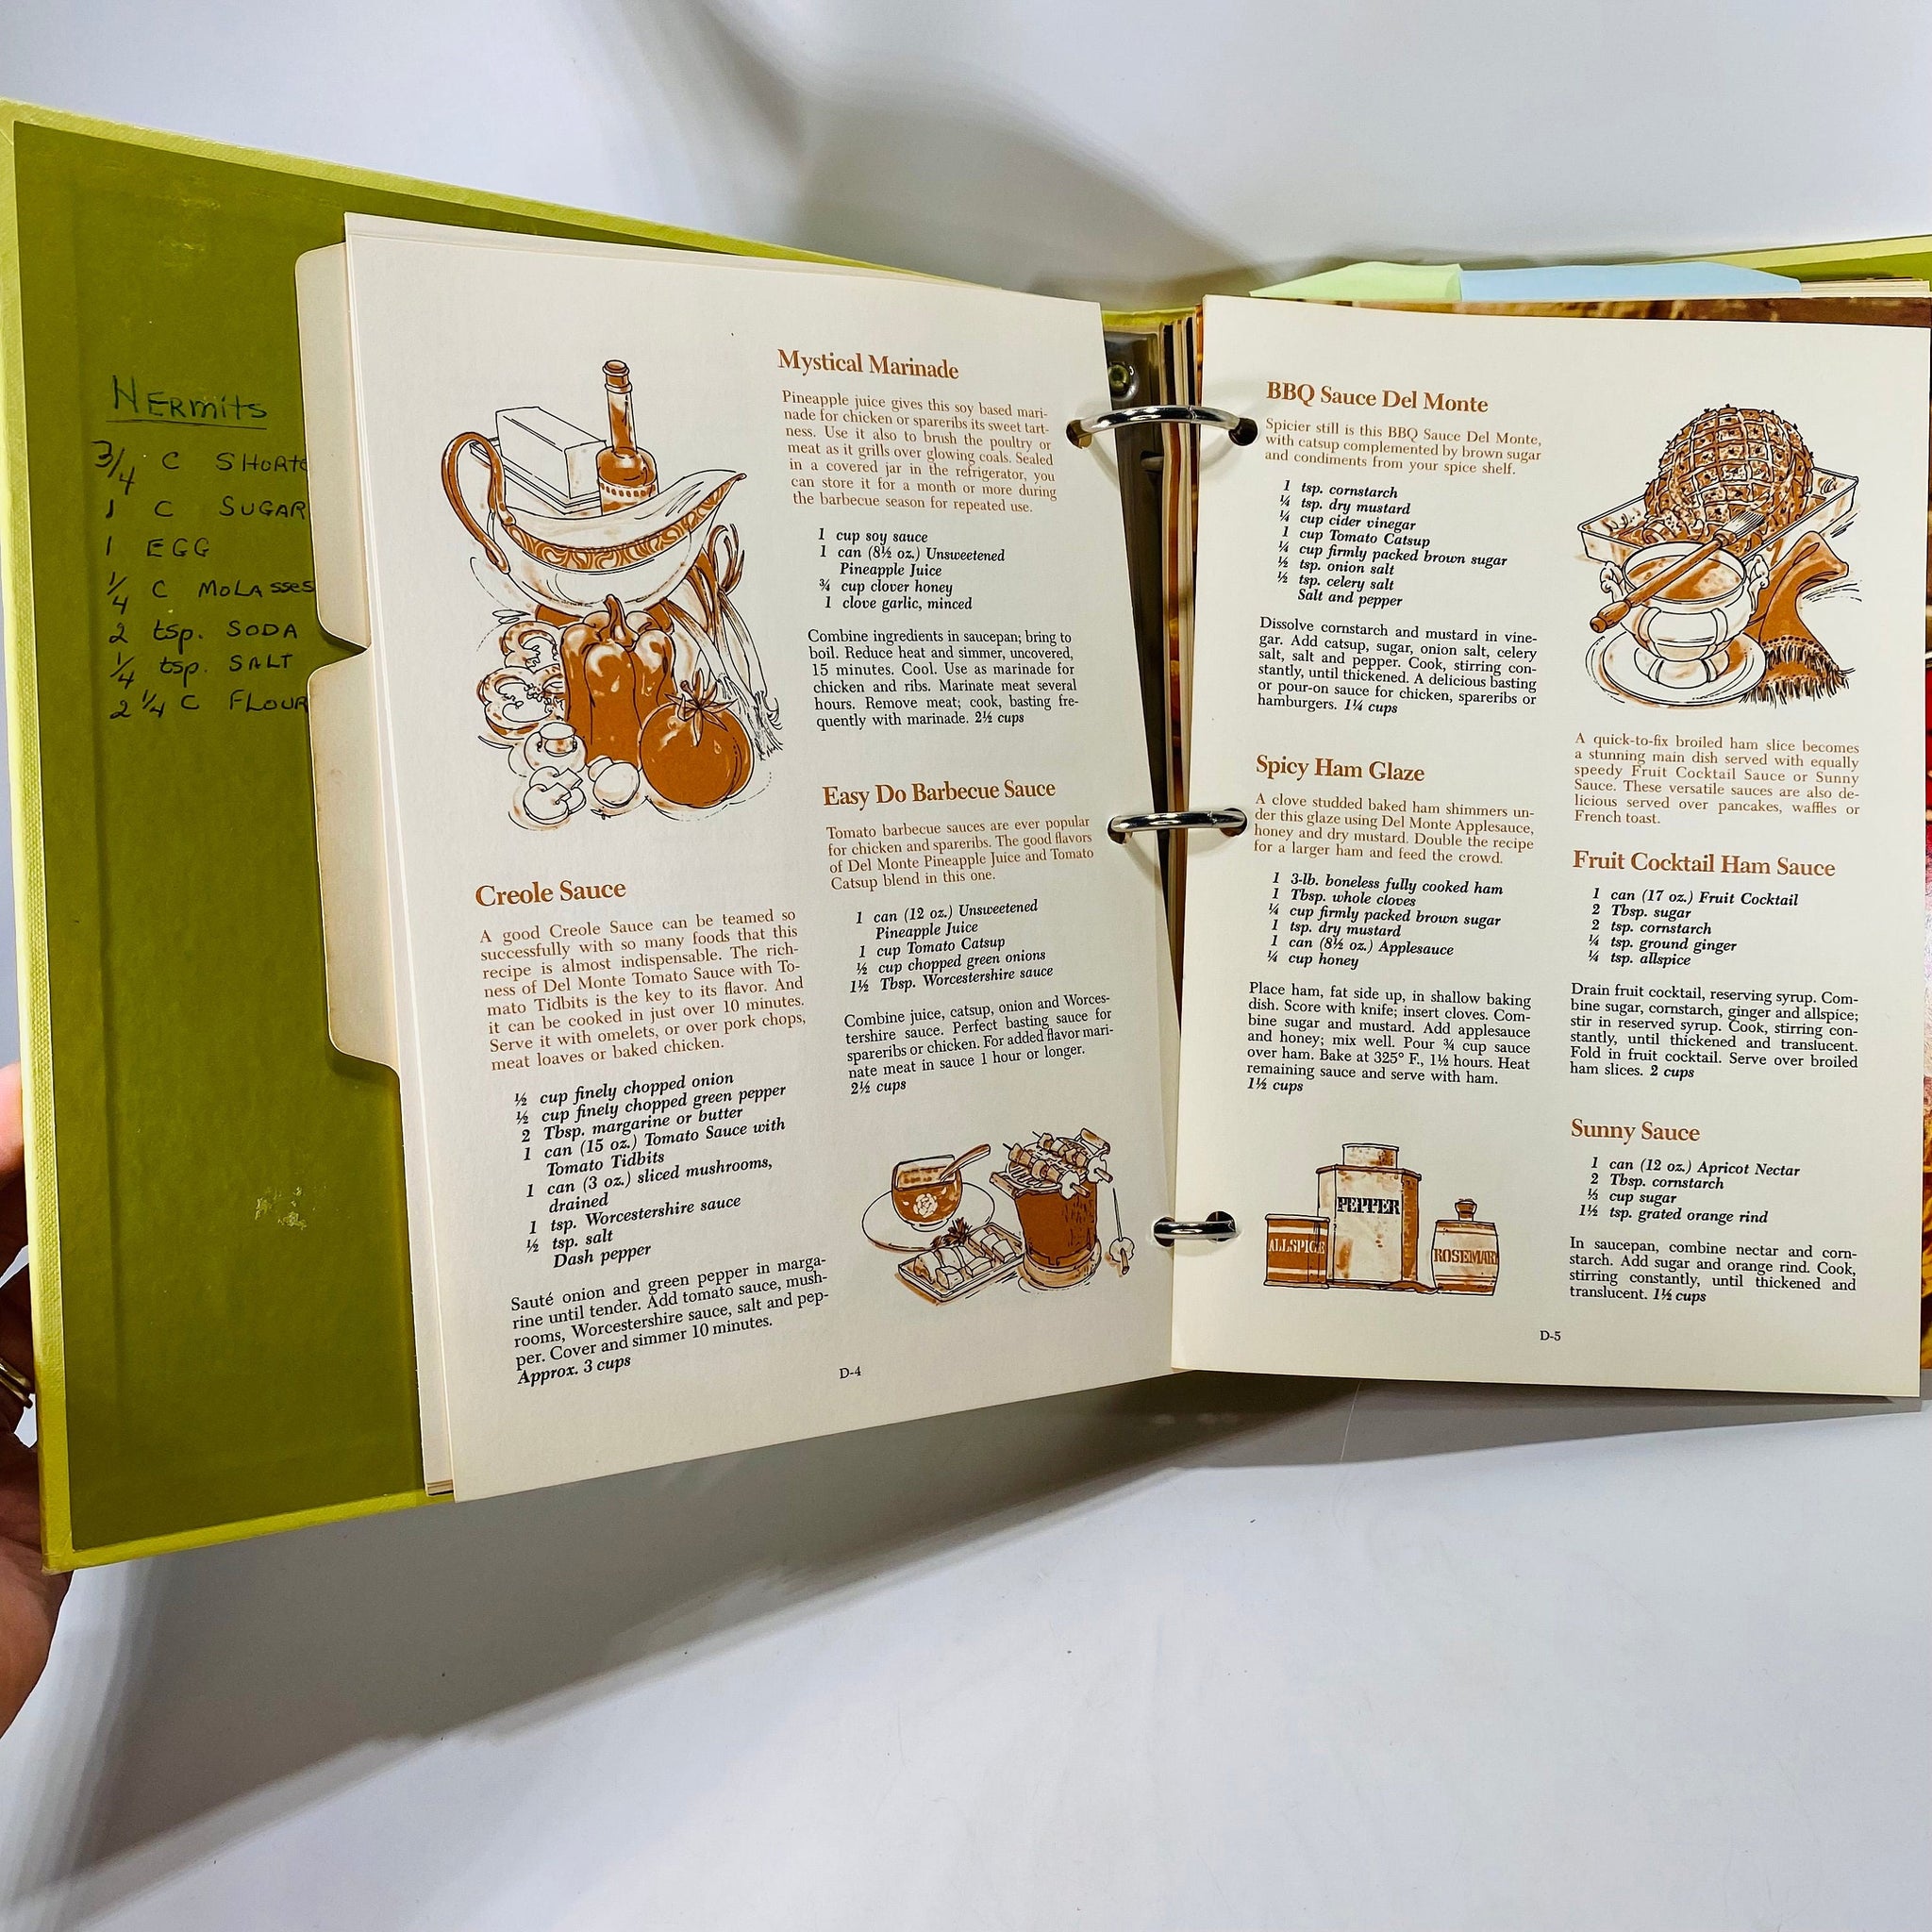 HErmits
3/4 C SHORT
1 C SUGAR
1 EGG
1/4 C MOLAsses
2 tsp. SODA
1/4 tsp. SALT
2 1/4 C FLOUR
Creole Sauce
A good Creole Sauce can be teamed so
successfully with so many foods that this
recipe is almost indispensable. The rich-
ness of Del Monte Tomato Sauce with To-
mato Tidbits is the key to its flavor. And
it can be cooked in just over 10 minutes.
Serve it with omelets, or over pork chops,
meat loaves or baked chicken.
½ cup finely chopped onion
½ cup finely chopped green pepper
2 Tbsp. margarine or butter
1 can (15 oz.) Tomato Sauce with
Tomato Tidbits
1 can (3 oz.) sliced mushrooms,
drained
1 tsp. Worcestershire sauce
½ tsp. salt
Dash pepper
Sauté onion and green pepper in marga-
rine until tender. Add tomato sauce, mush-
rooms, Worcestershire sauce, salt and pep-
per. Cover and simmer 10 minutes.
Approx. 3 cups
Mystical Marinade
Pineapple juice gives this soy based mari-
nade for chicken or spareribs its sweet tart-
ness. Use it also to brush the poultry or
meat as it grills over glowing coals. Sealed
in a covered jar in the refrigerator, you
can store it for a month or more during
the barbecue season for repeated use.
1 cup soy sauce
1 can (8½ oz.) Unsweetened
Pineapple Juice
¾ cup clover honey
1 clove garlic, minced
Combine ingredients in saucepan; bring to
boil. Reduce heat and simmer, uncovered,
15 minutes. Cool. Use as marinade for
chicken and ribs. Marinate meat several
hours. Remove meat; cook, basting fre-
quently with marinade. 2½ cups
Easy Do Barbecue Sauce
Tomato barbecue sauces are ever popular
for chicken and spareribs. The good flavors
of Del Monte Pineapple Juice and Tomato
Catsup blend in this one.
1 can (12 oz.) Unsweetened
Pineapple Juice
1 cup Tomato Catsup
½ cup chopped green onions
1½ Tbsp. Worcestershire sauce
Combine juice, catsup, onion and Worces-
tershire sauce. Perfect basting sauce for
spareribs or chicken. For added flavor mari-
nate meat in sauce 1 hour or longer.
2½ cups
D-4
BBQ Sauce Del Monte
Spicier still is this BBQ Sauce Del Monte,
with catsup complemented by brown sugar
and condiments from your spice shelf.
1 tsp. cornstarch
¼ tsp. dry mustard
¼ cup cider vinegar
1 cup Tomato Catsup
¼ cup firmly packed brown sugar
½ tsp. onion salt
½ tsp. celery salt
Salt and pepper
Dissolve cornstarch and mustard in vine-
gar. Add catsup, sugar, onion salt, celery
salt, salt and pepper. Cook, stirring con-
stantly, until thickened. A delicious basting
or pour-on sauce for chicken, spareribs or
hamburgers. 1¼ cups
Spicy Ham Glaze
A clove studded baked ham shimmers un-
der this glaze using Del Monte Applesauce,
honey and dry mustard. Double the recipe
for a larger ham and feed the crowd.
1 3-lb. boneless fully cooked ham
1 Tbsp. whole cloves
¼ cup firmly packed brown sugar
1 tsp. dry mustard
1 can (8½ oz.) Applesauce
¼ cup honey
Place ham, fat side up, in shallow baking
dish. Score with knife; insert cloves. Com-
bine sugar and mustard. Add applesauce
and honey; mix well. Pour ¾ cup sauce
over ham. Bake at 325° F., 1½ hours. Heat
remaining sauce and serve with ham.
1½ cups
ALLSPICE
PEPPER
ROSEMARY
A quick-to-fix broiled ham slice becomes
a stunning main dish served with equally
speedy Fruit Cocktail Sauce or Sunny
Sauce. These versatile sauces are also de-
licious served over pancakes, waffles or
French toast.
Fruit Cocktail Ham Sauce
1 can (17 oz.) Fruit Cocktail
2 Tbsp. sugar
2 tsp. cornstarch
¼ tsp. ground ginger
¼ tsp. allspice
Drain fruit cocktail, reserving syrup. Com-
bine sugar, cornstarch, ginger and allspice;
stir in reserved syrup. Cook, stirring con-
stantly, until thickened and translucent.
Fold in fruit cocktail. Serve over broiled
ham slices. 2 cups
Sunny Sauce
1 can (12 oz.) Apricot Nectar
2 Tbsp. cornstarch
⅓ cup sugar
1½ tsp. grated orange rind
In saucepan, combine nectar and corn-
starch. Add sugar and orange rind. Cook,
stirring constantly, until thickened and
translucent. 1½ cups
D-5